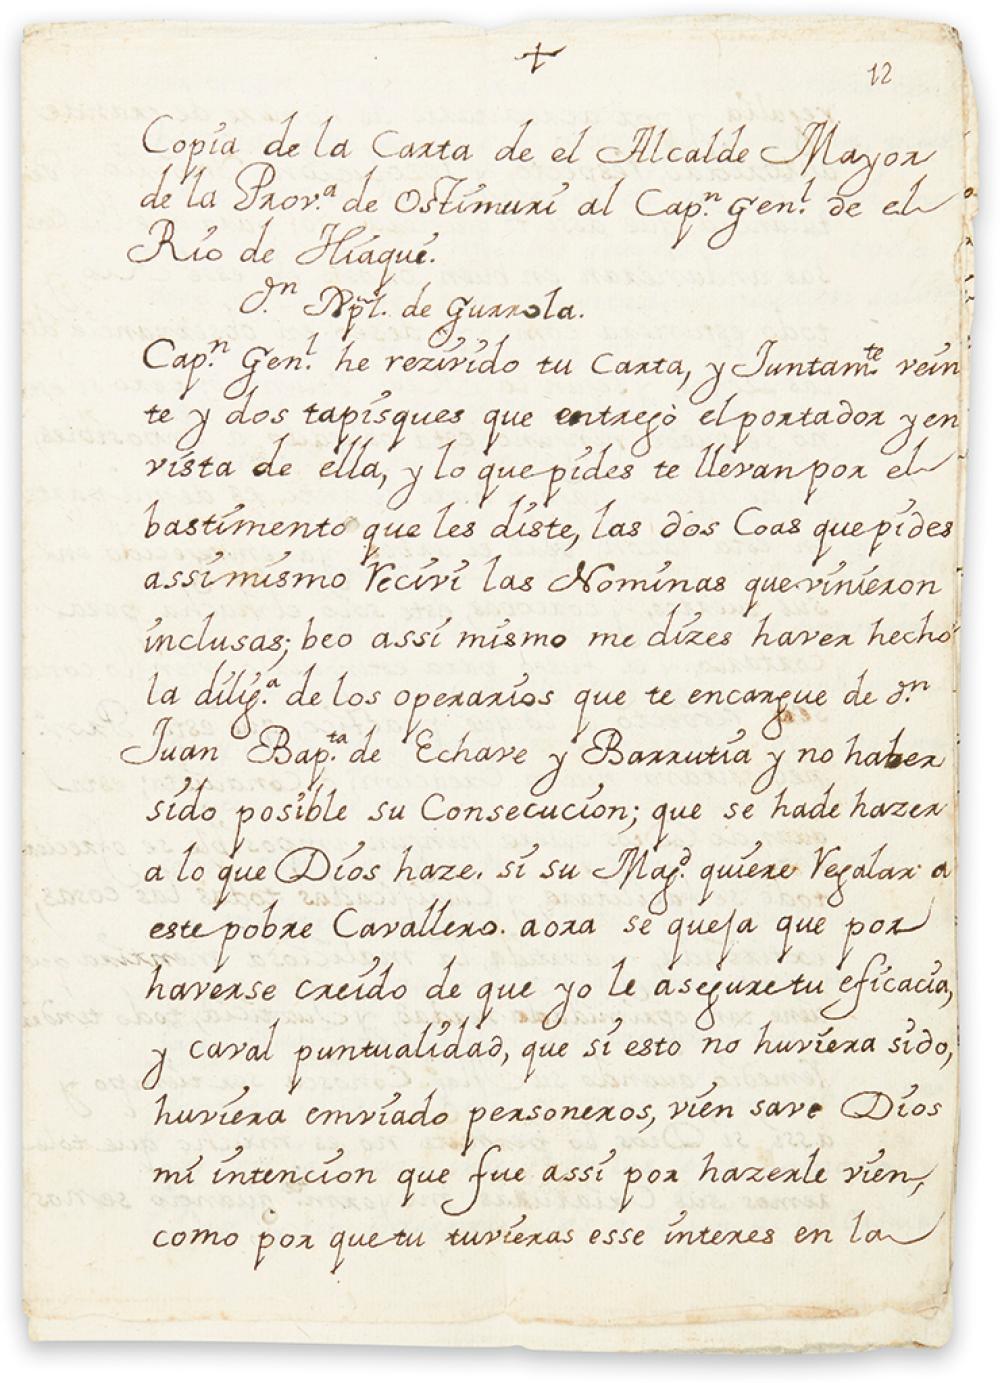 12
Copia de la Carta de el Alcalde Mayor
de la Prov.ª de Ostimuri al Cap.n Gen.l de el
Rio de Hiaqui.
D.n Npl. de Gurrola.
Cap.n Gen.l he rezivido tu Carta, y Juntam.te vein
te y dos tapisques que entregò el portador y en
vista de ella, y lo que pides te llevan por el
bastimento que les diste, las dos Coas que pides
assimismo recivi las Nominas que vinieron
inclusas; beo assi mismo me dizes haver hecho
la dilig.ª de los operarios que te encargue de D.n
Juan Bap.ta de Echave y Barrutia y no haber
sido posible su Consecucion; que se hade hazer
a lo que Dios haze. si su Mag.d quiere regalar a
este pobre Cavallero. aora se queja que por
haverse creido de que yo le asegure tu eficacia,
y caval puntualidad, que si esto no huviera sido,
huviera emviado personeros, vien save Dios
mi intencion que fue assi por hazerle vien,
como por que tu tuvieras esse interes en la